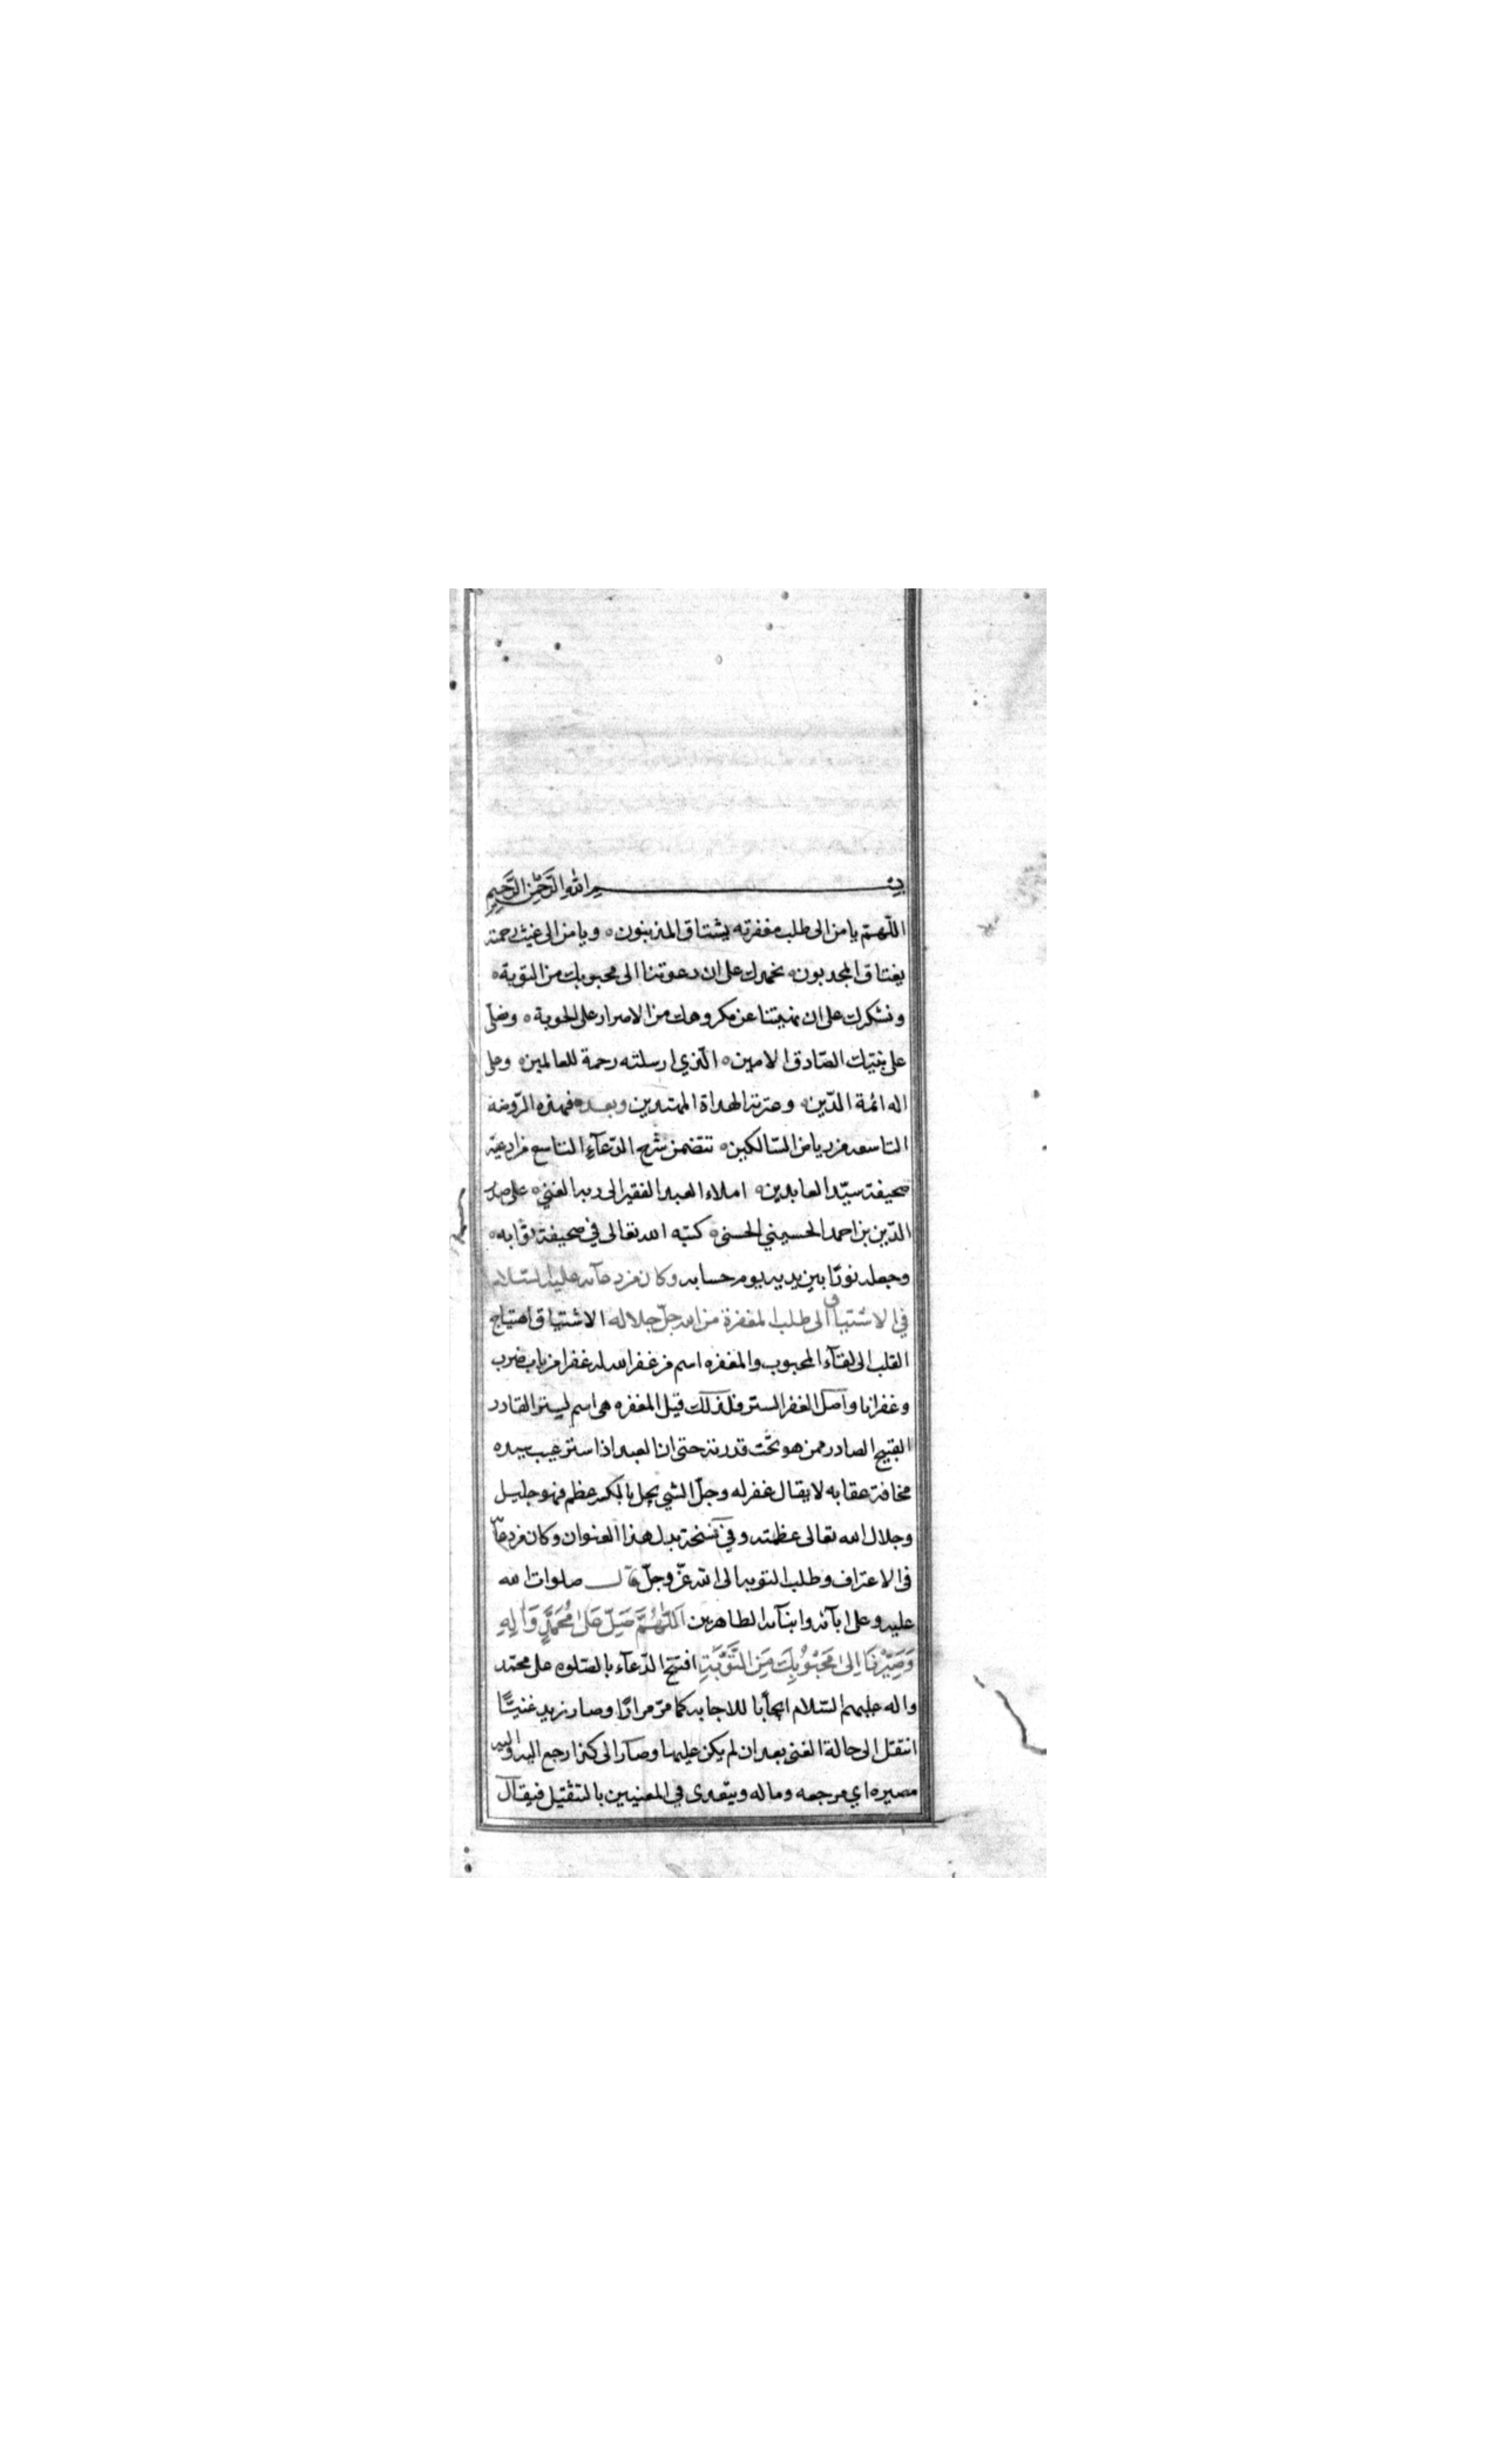 بسم الله الرحمن الرحيم
اللّهمّ يا من الى طلب مغفرته يشتاق المذنبون ٥ ويا من الى غيث رحمته
يفتاق المجدبون ٥ نحمدك على ان دعوتنا الى محبوبك من التوبة ٥
ونشكرك على ان نهيتنا عن مكروهك من الاصرار على الحوبة ٥ ونصلّي
على نبيّك الصّادق الامين ٥ الّذي ارسلته رحمة للعالمين ٥ وعلى
اله ائمة الدّين ٥ وعترته الهداة المهتدين وبعد فهذه الرّوضة
التاسعه من رياض السّالكين ٥ تتضمن شرح الدّعآء التاسع من ادعية
صحيفة سيّد العابدين ٥ املاء العبد الفقير الى ربه الغنيّ ٥ على صدر
الدّين بن احمد الحسيني الحسنى ٥ كتبه الله تعالى في صحيفة ثوابه ٥
وجعله نورًا بين يديه يوم حسابه وكان من دعآئه عليه السّلام
في الاشتياق الى طلب المغفرة من الله جلّ جلاله الاشتياق اهتياج
القلب الى لقآء المحبوب والمغفره اسم من غفر الله له غفرا من باب ضرب
وغفرانا واصل الغفر الستر فلذلك قيل المغفره هى اسم لستر القادر
القبيح الصادر ممن هو تحت قدرته حتى ان العبد اذا ستر عيب سيده
مخافة عقابه لا يقال غفر له وجلّ الشي يجل بالكسر عظم فهو جليل
وجلال الله تعالى عظمته وفي نسخة بدل هذا العنوان وكان من دعآئه
فى الاعتراف وطلب التوبه الى الله عزّ وجلّ قال صلوات الله
عليه وعلى ابآئه وابنآئه الطاهرين اَللّهُمَّ صَلِّ عَلى مُحَمَّدٍ وَآلِهِ
وَصَيِّرْنَا اِلى مَحْبُوْبِكَ مِنَ التَّوْبَةِ افتتح الدّعآء بالصّلوه على محمّد
واله عليهم السّلام ايجابًا للاجابه كما مرّ مرارًا وصار زيد غنيًّا
انتقل الى حالة الغنى بعد ان لم يكن عليها وصار الى كذا رجع اليه واليه
مصيره اي مرجعه وماله ويتعدى في المعنيين بالتثقيل فيقال